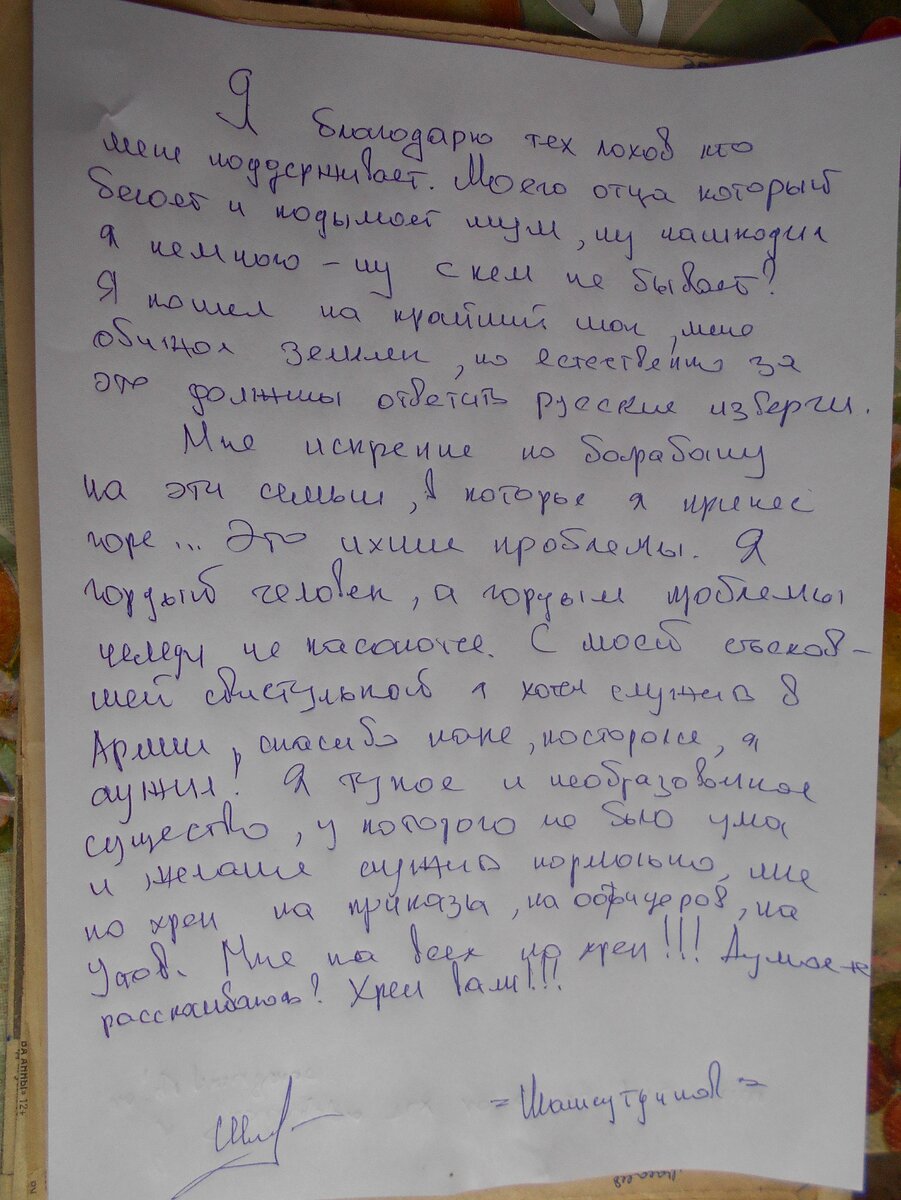 Я благодарю тех лохов кто
меня поддерживает. Моего отца который
бегает и подымает шум, ну нашкодил
я немного – ну с кем не бывает?
Я пошел на крайний шаг, меня
обижал земляк, но естественно за
это должны ответить русские изверги.
Мне искренне по барабану
на эти семьи, в которые я принес
горе... Это ихние проблемы. Я
гордый человек, а гордым проблемы
челяди не касаются. С моей съехав-
шей свистулькой я хотел служить в
Армии, спасибо папе, постарался, я
служил! Я тупое и необразованное
существо, у которого не было ума
и желания служить нормально, мне
по хрен на приказы, на офицеров, на
Устав. Мне на всех по хрен!!! Думаете
расскаиваюсь? Хрен вам!!!
= Шамсутдинов =
ВА АННЫ» 12+